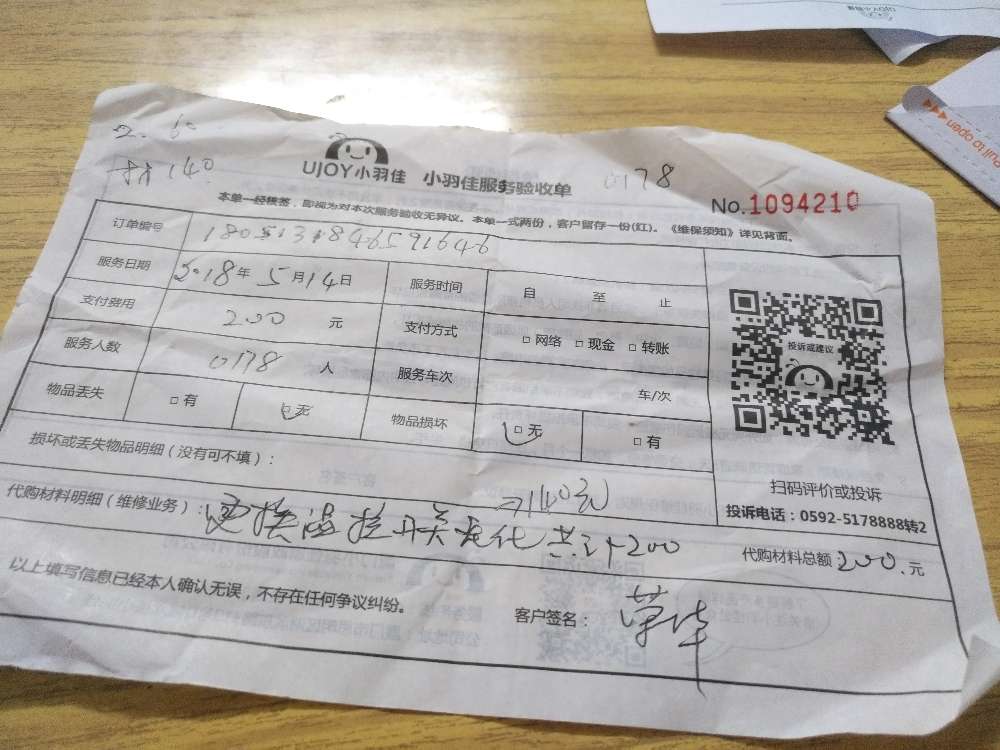 2. 60
材140
UJOY小羽佳 小羽佳服务验收单 0178
No.1094210
本单一经核签，即视为对本次服务验收无异议。本单一式两份，客户留存一份(红)。《维保须知》详见背面。
订单编号 1805131846591646
服务日期 2018年5月14日 服务时间 自 至 止
支付费用 200 元 支付方式 □网络 □现金 □转账
服务人数 0178 人 服务车次 车/次
物品丢失 □有 □无 物品损坏 □无 □有
投诉或建议
扫码评价或投诉
投诉电话：0592-5178888转2
损坏或丢失物品明细（没有可不填）：
140元
代购材料明细（维修业务）：更换温控开关老化 共计200
代购材料总额200.元
以上填写信息已经本人确认无误，不存在任何争议纠纷。 客户签名：
pull to open